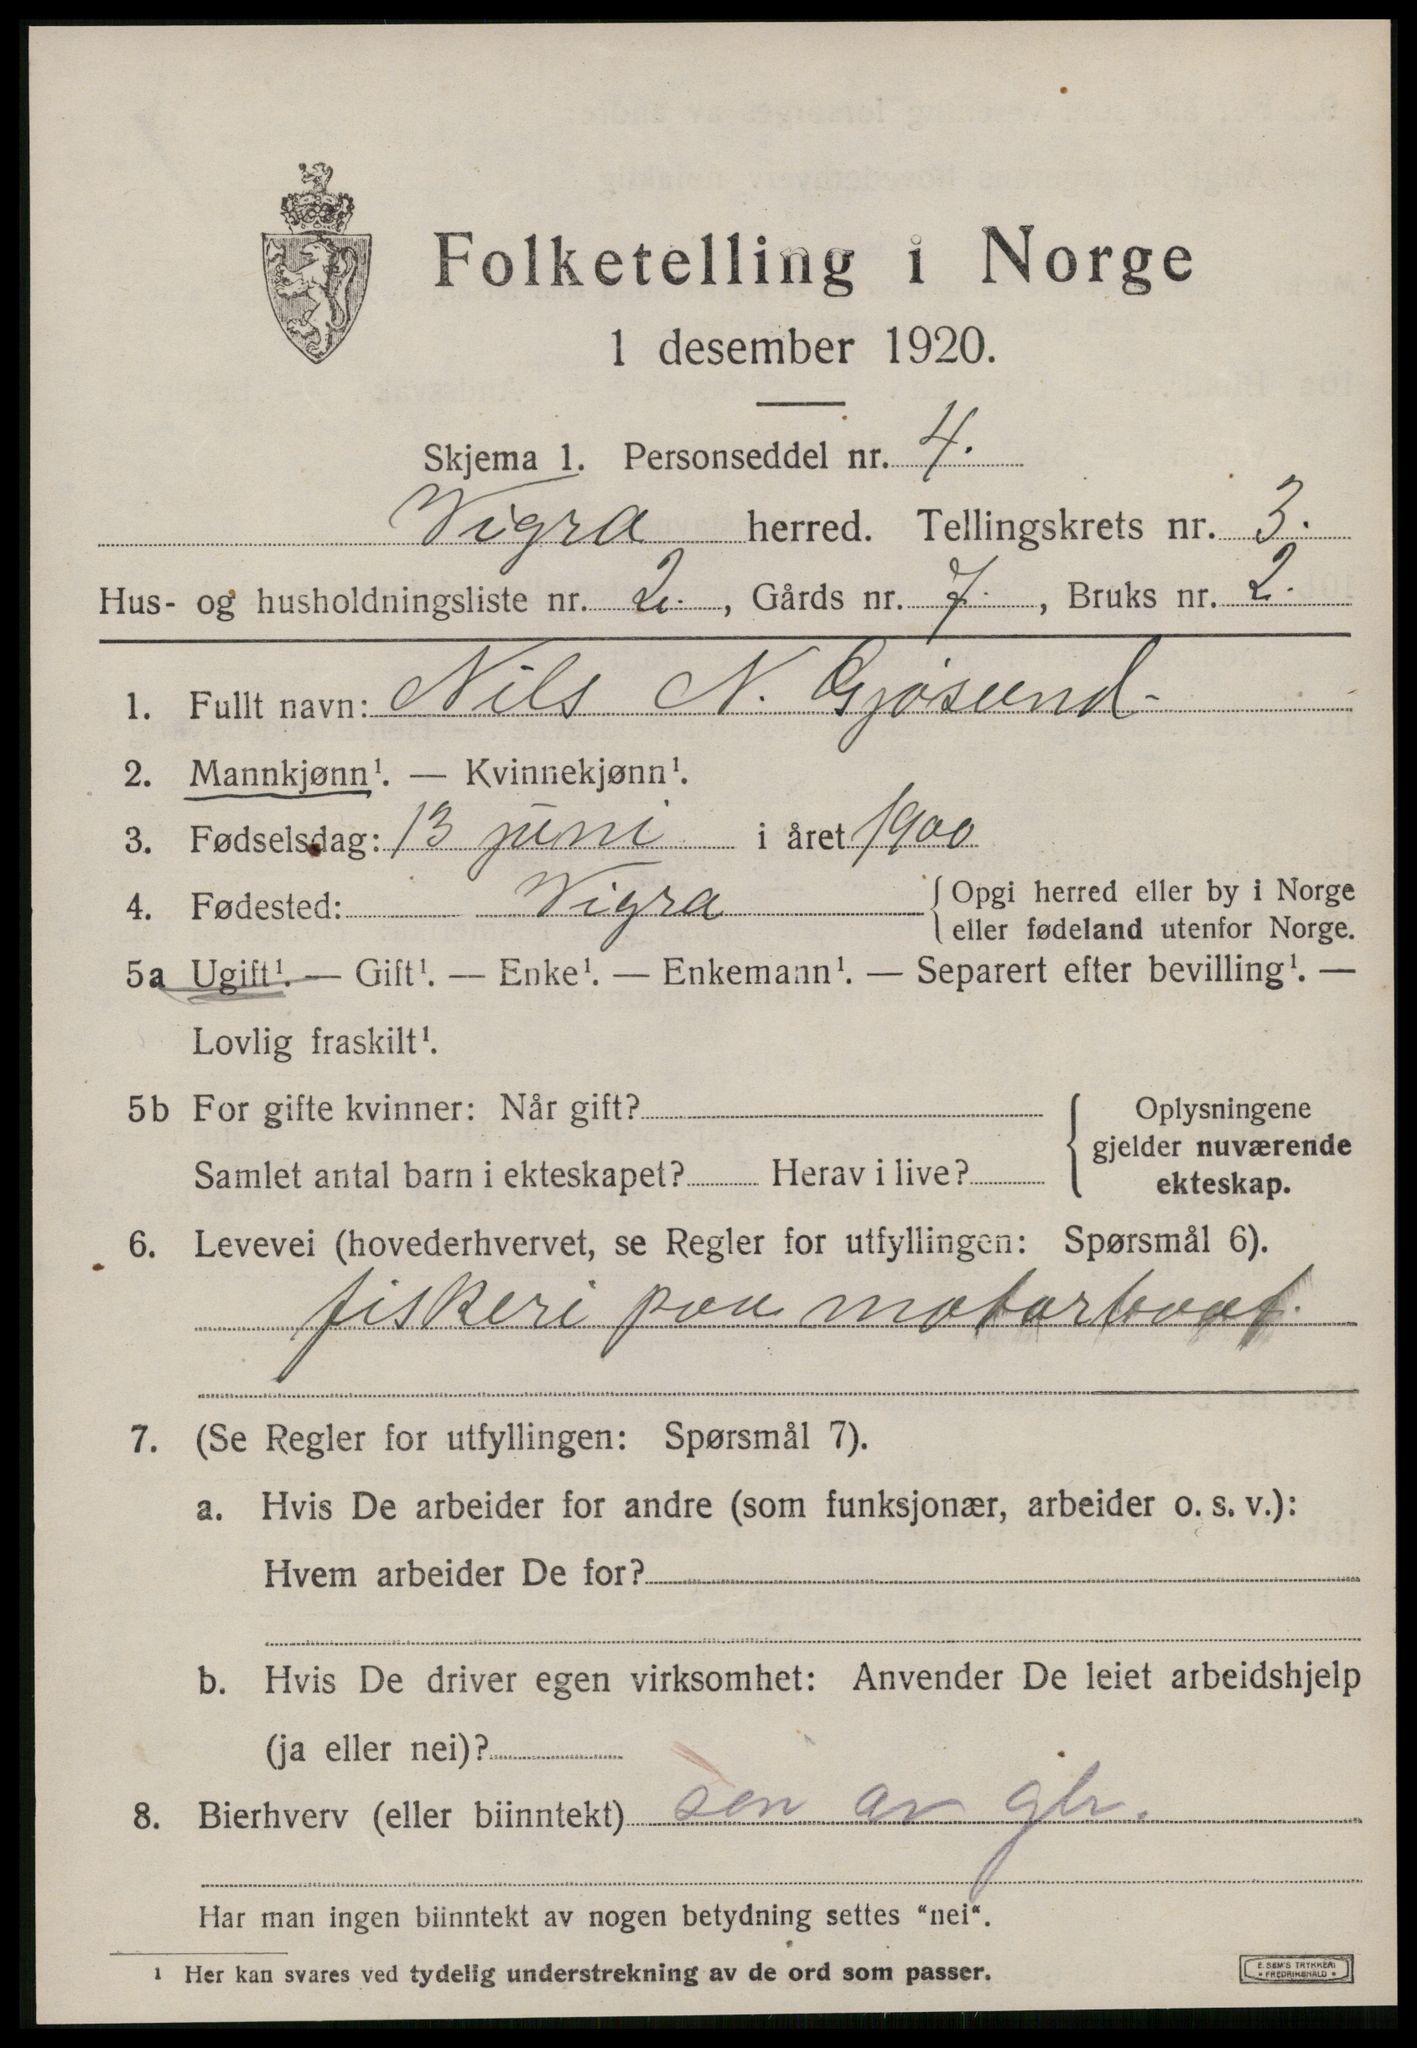 Folketelling i Norge
1 desember 1920.
Skjema 1. Personseddel nr. 4.
Vigra herred. Tellingskrets nr. 3.
Hus- og husholdningsliste nr. 2., Gårds nr. 7., Bruks nr. 2.
1. Fullt navn: Nils N. Gjøsund
2. Mannkjønn¹. — Kvinnekjønn¹.
3. Fødselsdag: 13 juni i året 1900
4. Fødested: Vigra { Opgi herred eller by i Norge
eller fødeland utenfor Norge.
5a Ugift¹. — Gift¹. — Enke¹. — Enkemann¹. — Separert efter bevilling¹. —
Lovlig fraskilt¹.
5b For gifte kvinner: Når gift?
Samlet antal barn i ekteskapet? Herav i live?
{ Oplysningene
gjelder nuværende
ekteskap.
6. Levevei (hovederhvervet, se Regler for utfyllingen: Spørsmål 6).
fiskeri paa motorbaat.
7. (Se Regler for utfyllingen: Spørsmål 7).
a. Hvis De arbeider for andre (som funksjonær, arbeider o. s. v.):
Hvem arbeider De for?
b. Hvis De driver egen virksomhet: Anvender De leiet arbeidshjelp
(ja eller nei)?
8. Bierhverv (eller biinntekt) søn av gbr.
Har man ingen biinntekt av nogen betydning settes "nei".
¹ Her kan svares ved tydelig understrekning av de ord som passer.
E. SEM'S TRYKKERI
• FREDRIKSHALD •